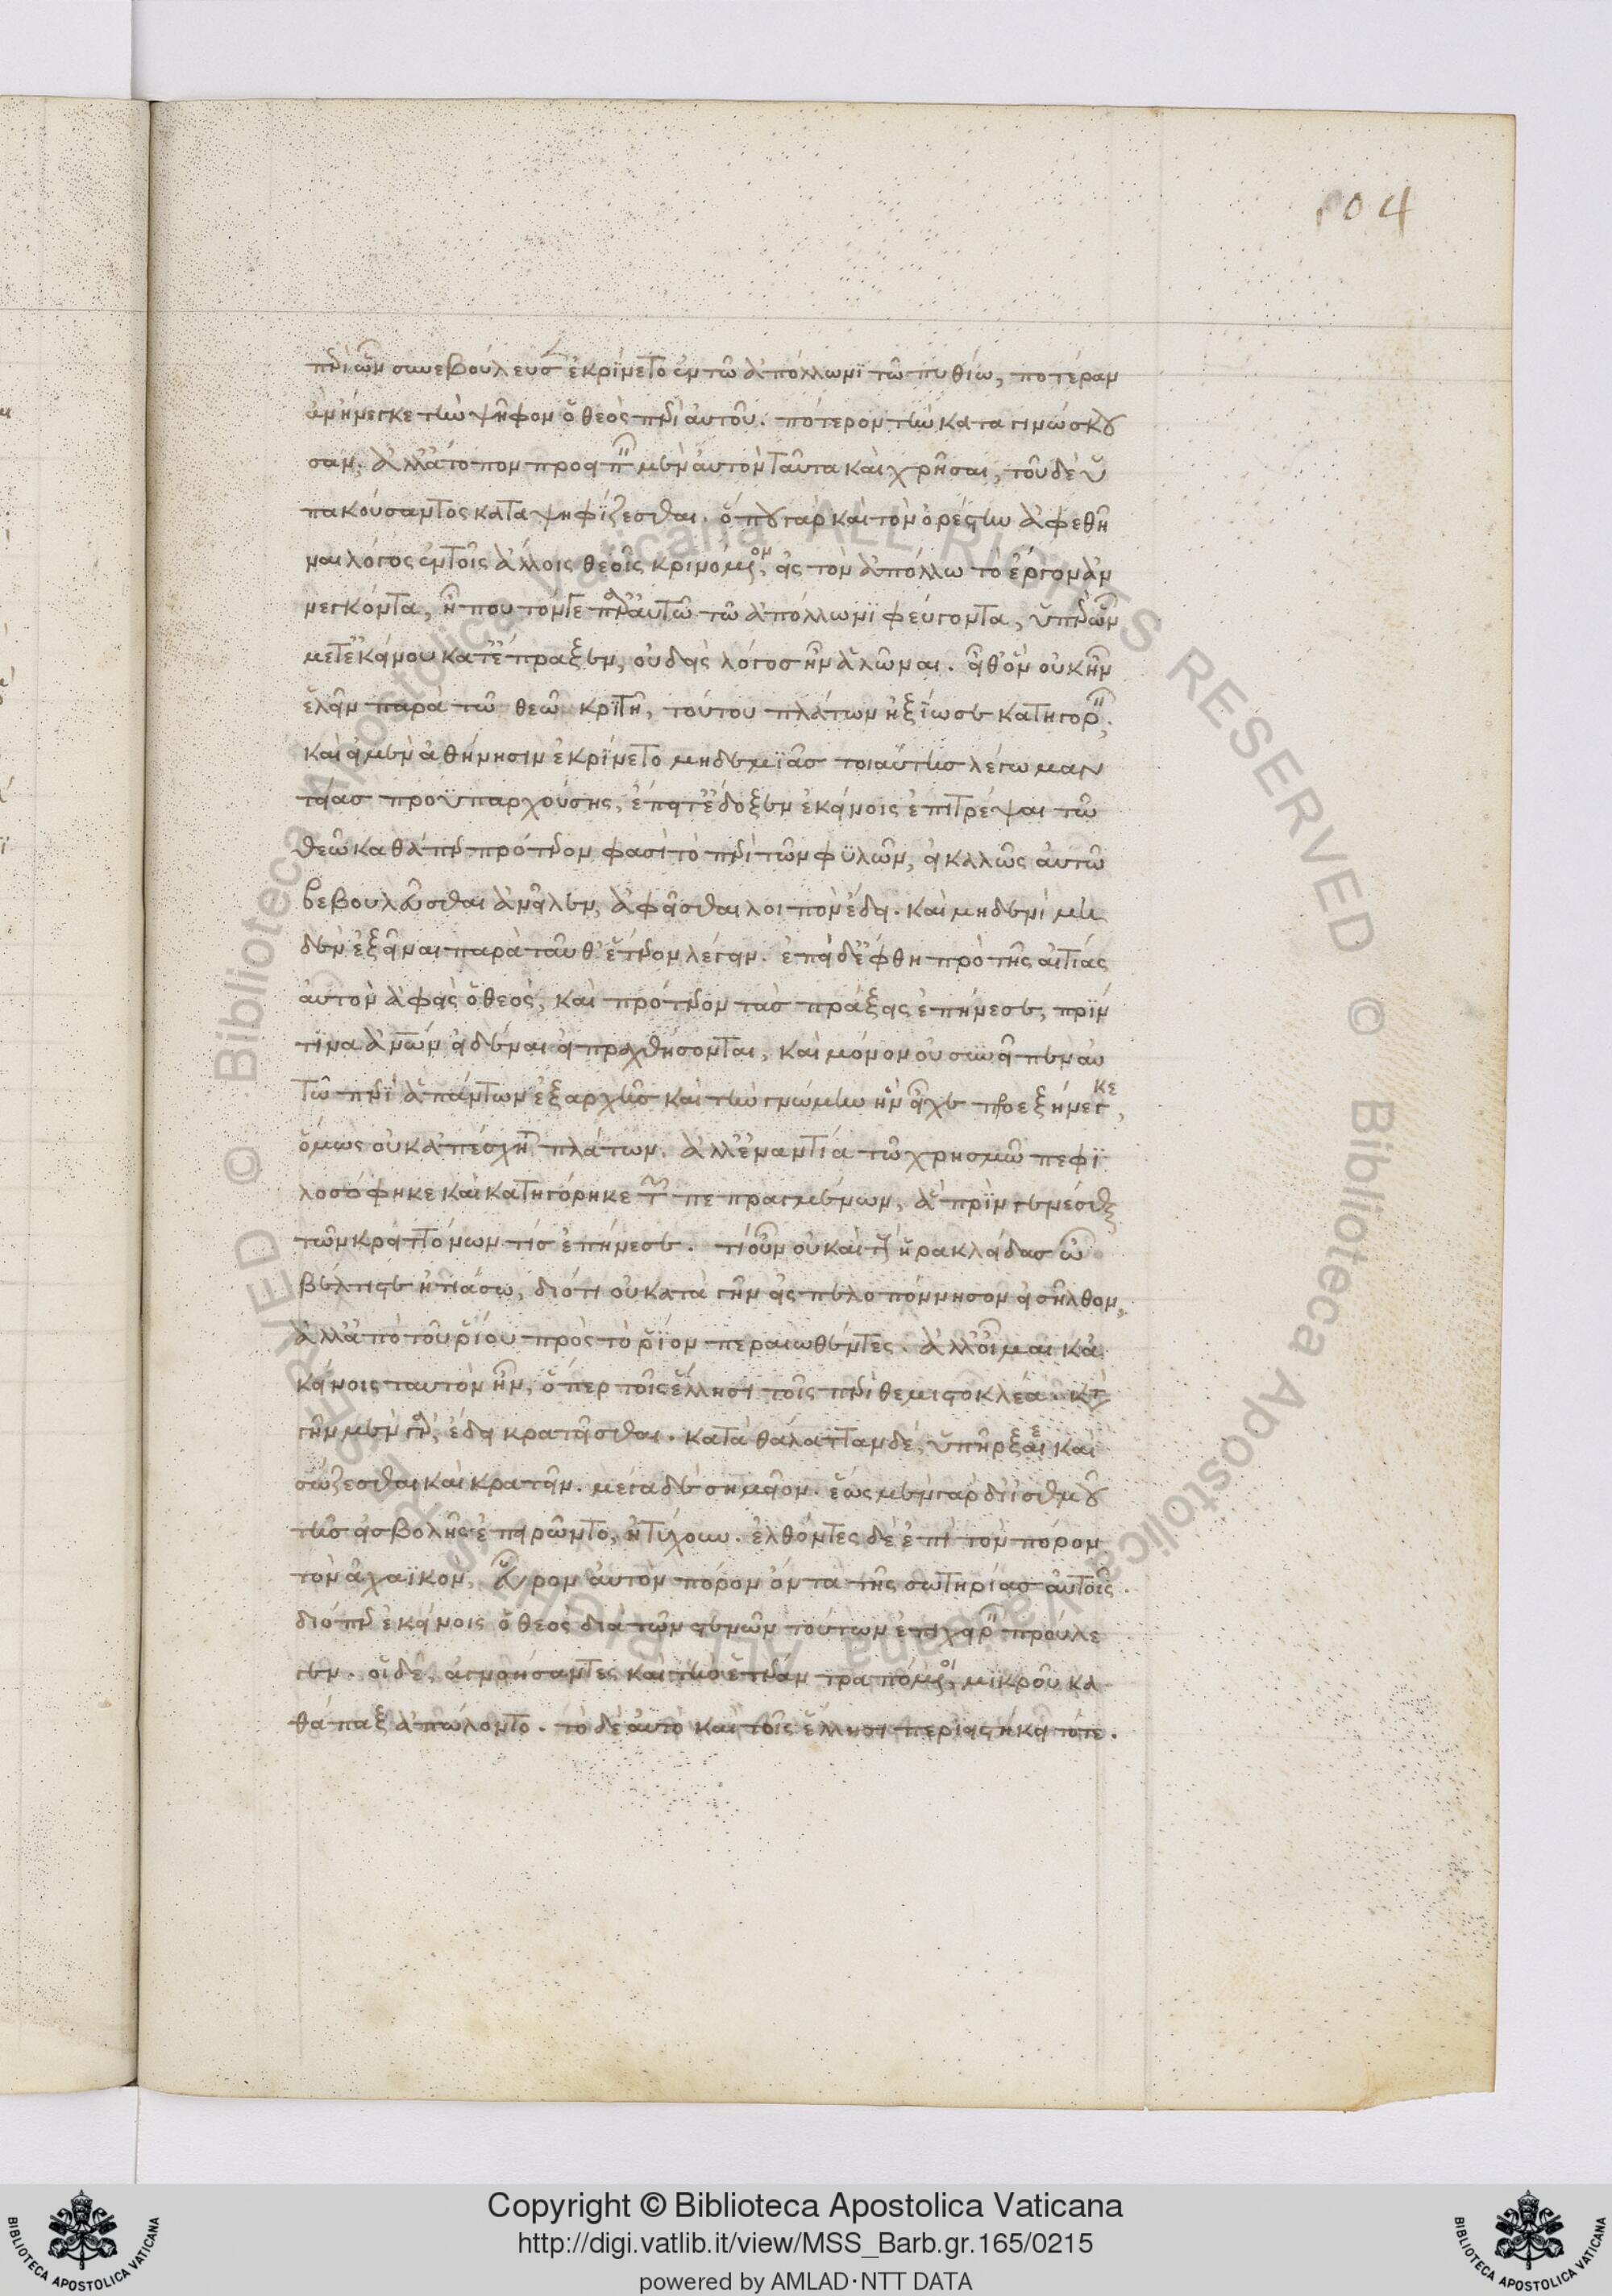 104
περὶ ὧν συνεβούλευσεν ἐκρίνετο ἐν τῶ ἀπόλλωνι τῶ πυθίω, ποτέραν
ἂν ἤνεγκε τὴν ψῆφον ὁ θεὸς περὶ αὐτοῦ. πότερον τὴν καταγινώσκου
σαν, ἀλλ' ἄτοπον προειπεῖν μὲν αὐτὸν ταῦτα καὶ χρῆσαι, τοῦ δὲ ὑ
πακούσαντος καταψηφίζεσθαι. ὅπου γὰρ καὶ τὸν ὀρέστην ἀφεθῆ
ναι λόγος ἐν τοῖς ἄλλοις θεοῖς κρινόμενον, εἰς τὸν ἀπόλλω τὸ ἔργον ἀν
νεγκόντα, ἦ που τόν γε παρ' αὐτῶ τῶ ἀπόλλωνι φεύγοντα, ὑπὲρ ὧν
μετ' ἐκείνου κατέπραξεν, οὐδεὶς λόγος ἦν ἁλῶναι. εἶθ' ὃν οὐκ ἦν
ἑλεῖν παρὰ τῶ θεῶ κριτῆ, τούτου πλάτων ἠξίωσε κατηγορεῖν.
καὶ εἰ μὲν ἀθήνησιν ἐκρίνετο μηδεμιᾶς τοιαύτης λέγω μαν
τείας προϋπαρχούσης, ἔπειτ' ἔδοξεν ἐκείνοις ἐπιτρέψαι τῶ
θεῶ καθάπερ πρότερον φασὶ τὸ περὶ τῶν φυλῶν, εἰ καλῶς αὐτῶ
βεβουλεῦσθαι ἀνεῖλεν, ἀφεῖσθαι λοιπὸν ἔδει. καὶ μηδενὶ μη
δὲν ἐξεῖναι παρὰ ταῦθ' ἕτερον λέγειν. ἐπεὶ δ' ἔφθη πρὸ τῆς αἰτίας
αὐτὸν ἀφεὶς ὁ θεὸς, καὶ πρότερον τὰς πράξεις ἐπήνεσε, πρίν
τινα ἀνθρώπων εἰδέναι εἰ πραχθήσονται, καὶ μόνον οὐ συνεῖπεν αυ
τῶ περὶ ἁπάντων ἐξαρχῆς καὶ τὴν γνώμην ἣν εἶχε προεξήνεγκε,
ὅμως οὐκ ἀπέσχετο πλάτων. ἀλλ' ἐναντία τῶ χρησμῶ πεφι
λοσόφηκε καὶ κατηγόρηκε τῶν πεπραγμένων, ἃ πρὶν γενέσθαι
τῶν κρειττόνων τίς ἐπήνεσε. τί οὖν οὐ καὶ τοὺς ἡρακλείδας ὦ
βέλτιστε ἠτιάσω, διότι οὐ κατὰ γῆν εἰς πελοπόννησον εἰσῆλθον,
ἀλλ' ἀπὸ τοῦ ῥίου πρὸς τὸ ῥίον περαιωθέντες. ἀλλ' οἶμαι κἀ
κείνοις ταυτὸν ἦν, ὅπερ τοῖς ἕλλησι τοῖς περὶ θεμιστοκλέα. κατὰ
γῆν μὲν γὰρ, ἔδει κρατεῖσθαι. κατὰ θάλατταν δὲ, ὑπῆρξε καὶ
σώζεσθαι καὶ κρατεῖν. μέγα δὲ σημεῖον. ἕως μὲν γὰρ δι' ἰσθμοῦ
τῆς εἰσβολῆς ἐπειρῶντο, ἠτύχουν. ἐλθόντες δὲ ἐπὶ τὸν πόρον
τὸν ἀχαϊκὸν, εὗρον αὐτὸν πόρον ὄντα τῆς σωτηρίας αὐτοῖς.
διόπερ ἐκείνοις ὁ θεὸς διὰ τῶν στενῶν τούτων ἐπιχειρεῖν προύλε
γεν. οἱ δὲ, ἀγνοήσαντες καὶ τὴν ἑτέραν τραπόμενοι, μικροῦ κα
θάπαξ ἀπώλοντο. τὸ δὲ αὐτὸ καὶ τοῖς ἕλλησι περιειστήκει τότε.
Copyright © Biblioteca Apostolica Vaticana
http://digi.vatlib.it/view/MSS_Barb.gr.165/0215
powered by AMLAD·NTT DATA